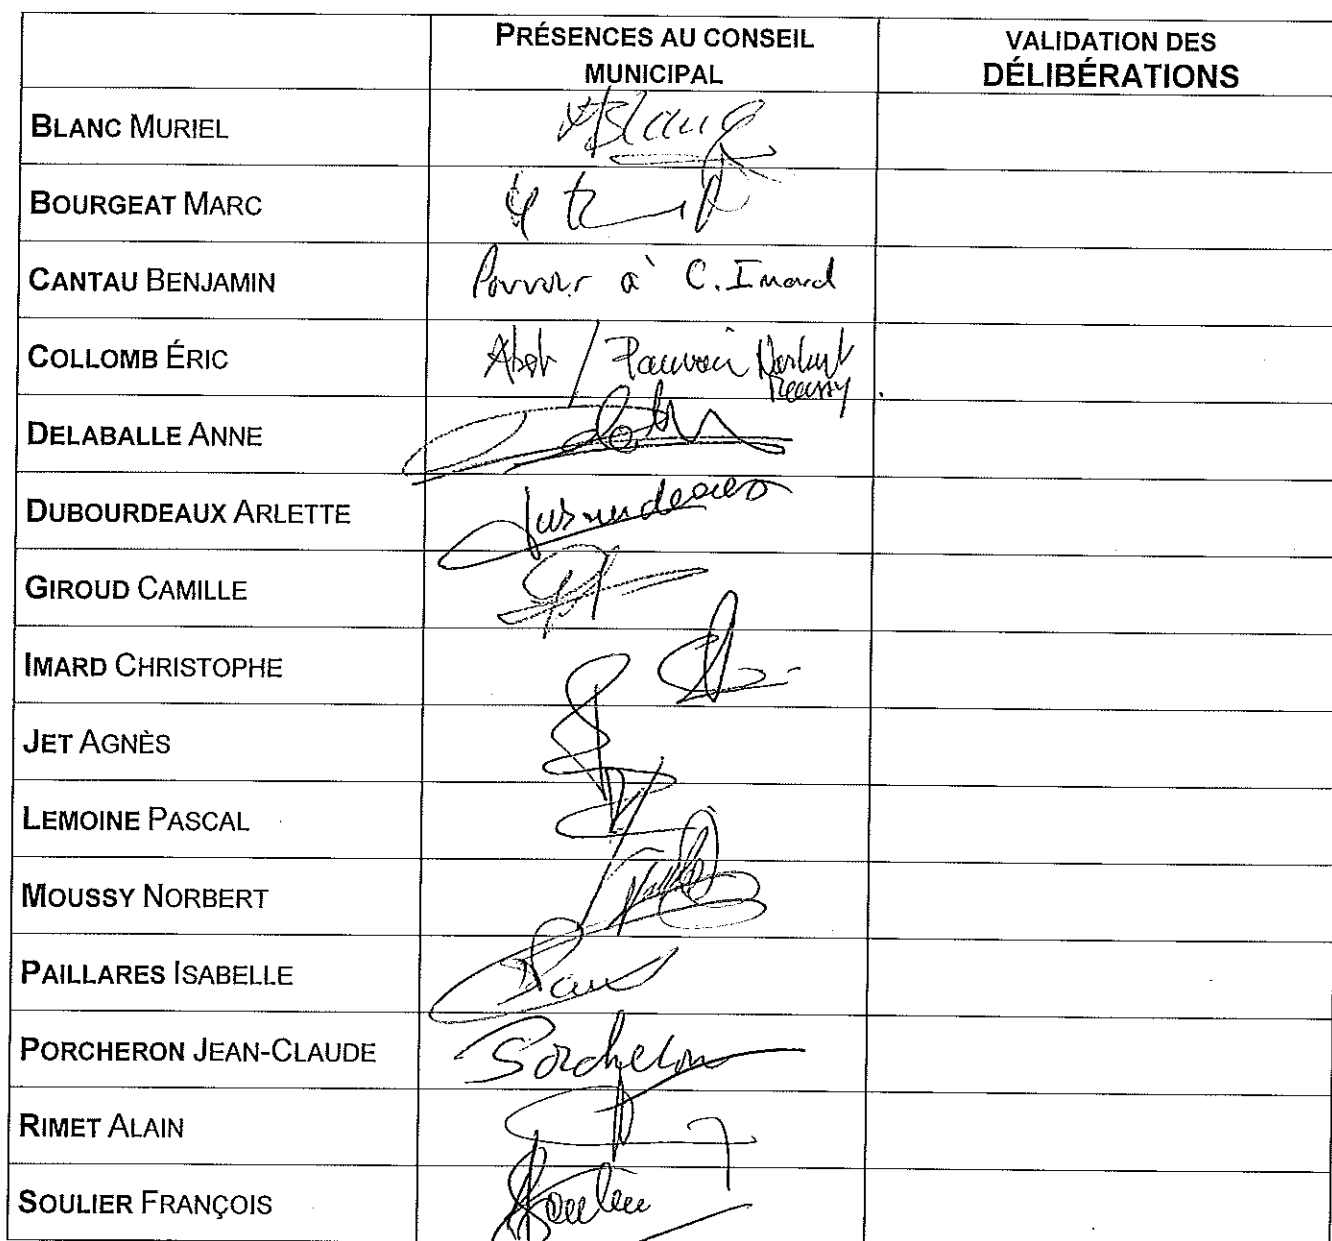 PRÉSENCES AU CONSEIL
MUNICIPAL
VALIDATION DES
DÉLIBÉRATIONS
BLANC MURIEL
BOURGEAT MARC
CANTAU BENJAMIN
Pouvoir à C. Imard
COLLOMB ÉRIC
Abst / Pouvoir Norbert
Moussy
DELABALLE ANNE
DUBOURDEAUX ARLETTE
Dubourdeaux
GIROUD CAMILLE
IMARD CHRISTOPHE
JET AGNÈS
LEMOINE PASCAL
MOUSSY NORBERT
PAILLARES ISABELLE
PORCHERON JEAN-CLAUDE
Porcheron
RIMET ALAIN
SOULIER FRANÇOIS